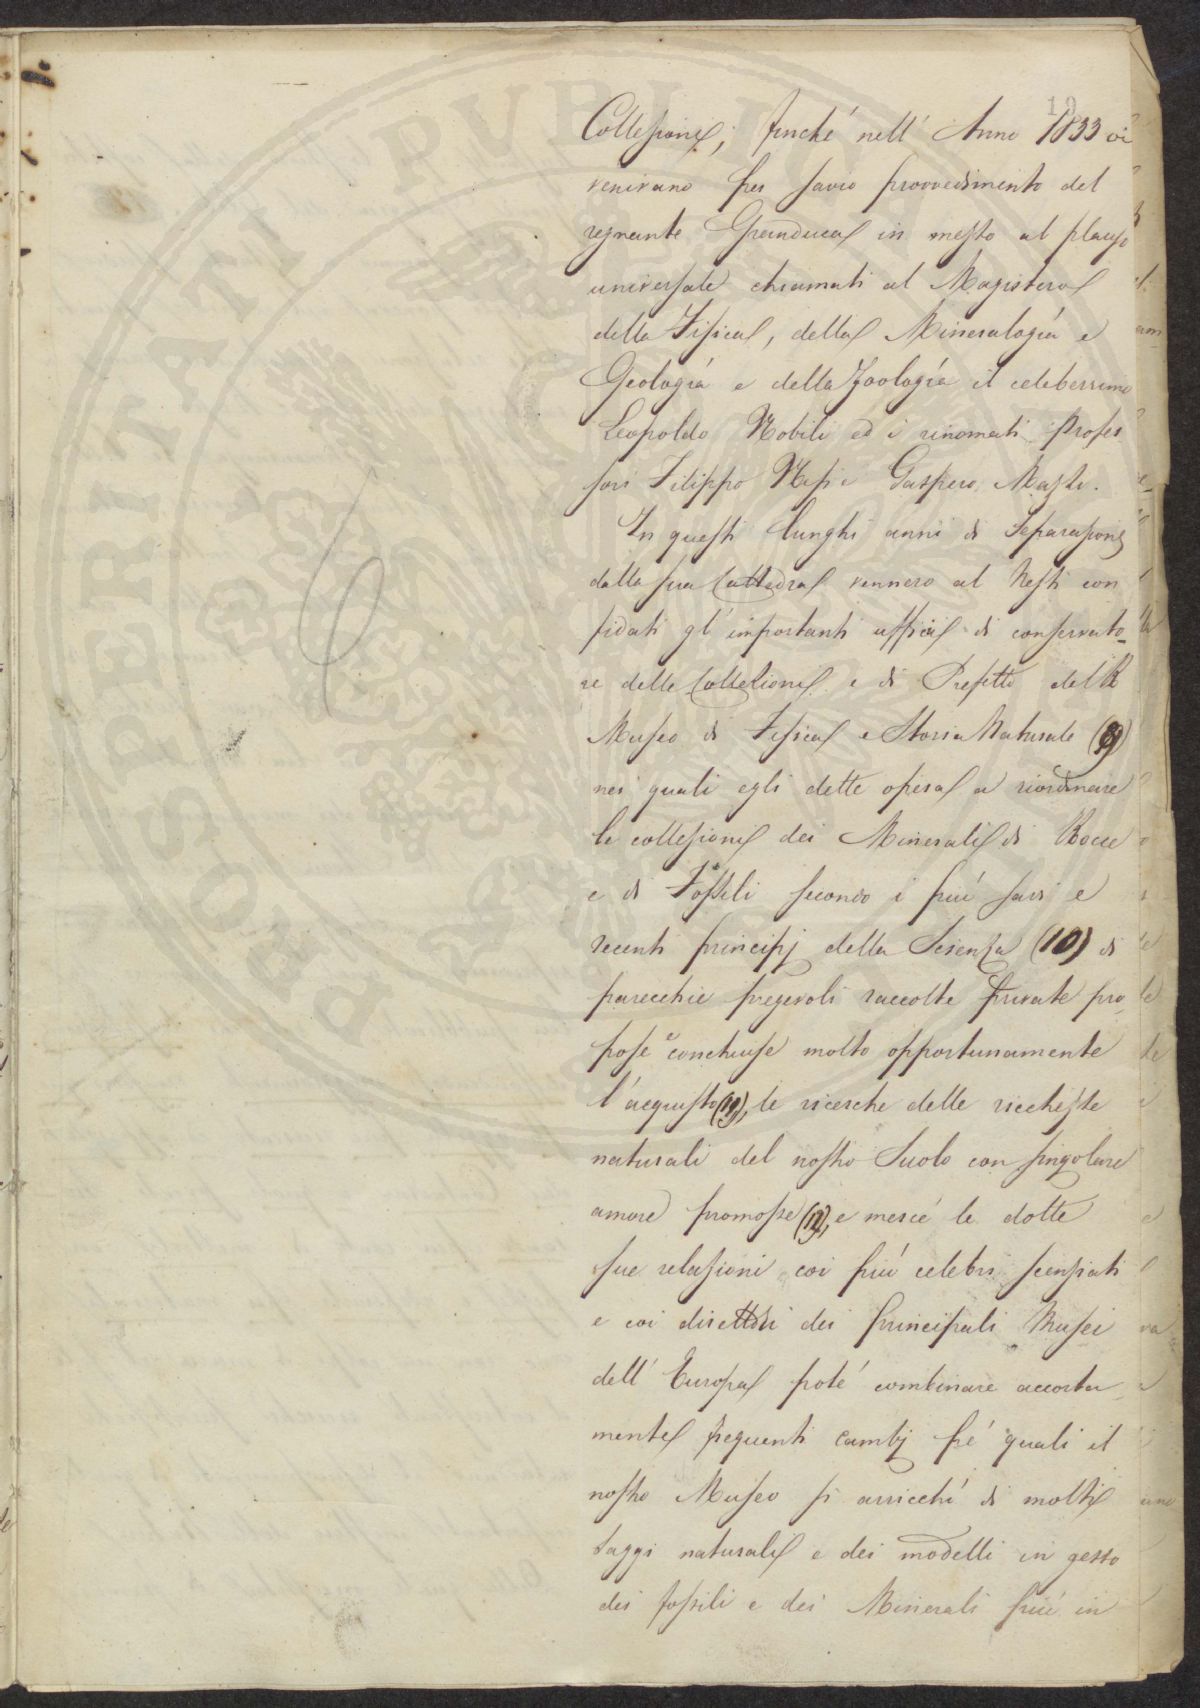 19
Collezioni; finché nell' Anno 1833 vi
venivano per savio provvedimento del
regnante Granduca in mezzo al plauso
universale chiamati al Magistero
della Fisica, della Mineralogía e
Geología e della Zoología il celeberrimo
Leopoldo Nobili ed i rinomati Profes
sori Filippo Nesi e Gaspero Mazzi.
In questi lunghi anni di separazione
dalla sua Cattedra vennero al Nesti con
fidati gl' importanti uffici di conservato-
re delle Collezioni e di Prefetto del R
Museo di Fisica e Storia Naturale (9)
nei quali egli dette opera a riordinare
le collezioni dei Minerali di Rocce
e di Fossili secondo i piú savi e
recenti principj della Scienza (10) di
parecchie pregevoli raccolte private pro-
pose e conchiuse molto opportunamente
l'acquisto (11), le ricerche delle ricchezze
naturali del nostro Suolo con singolare
amore promosse (12), e mercé le dotte
sue relazioni coi piú celebri scenziati
e coi direttori dei principali Musei
dell' Europa poté combinare accorta-
mente frequenti cambj pé quali il
nostro Museo si arricchí di molti
saggi naturali e dei modelli in gesso
dei fossili e dei Minerali piú in